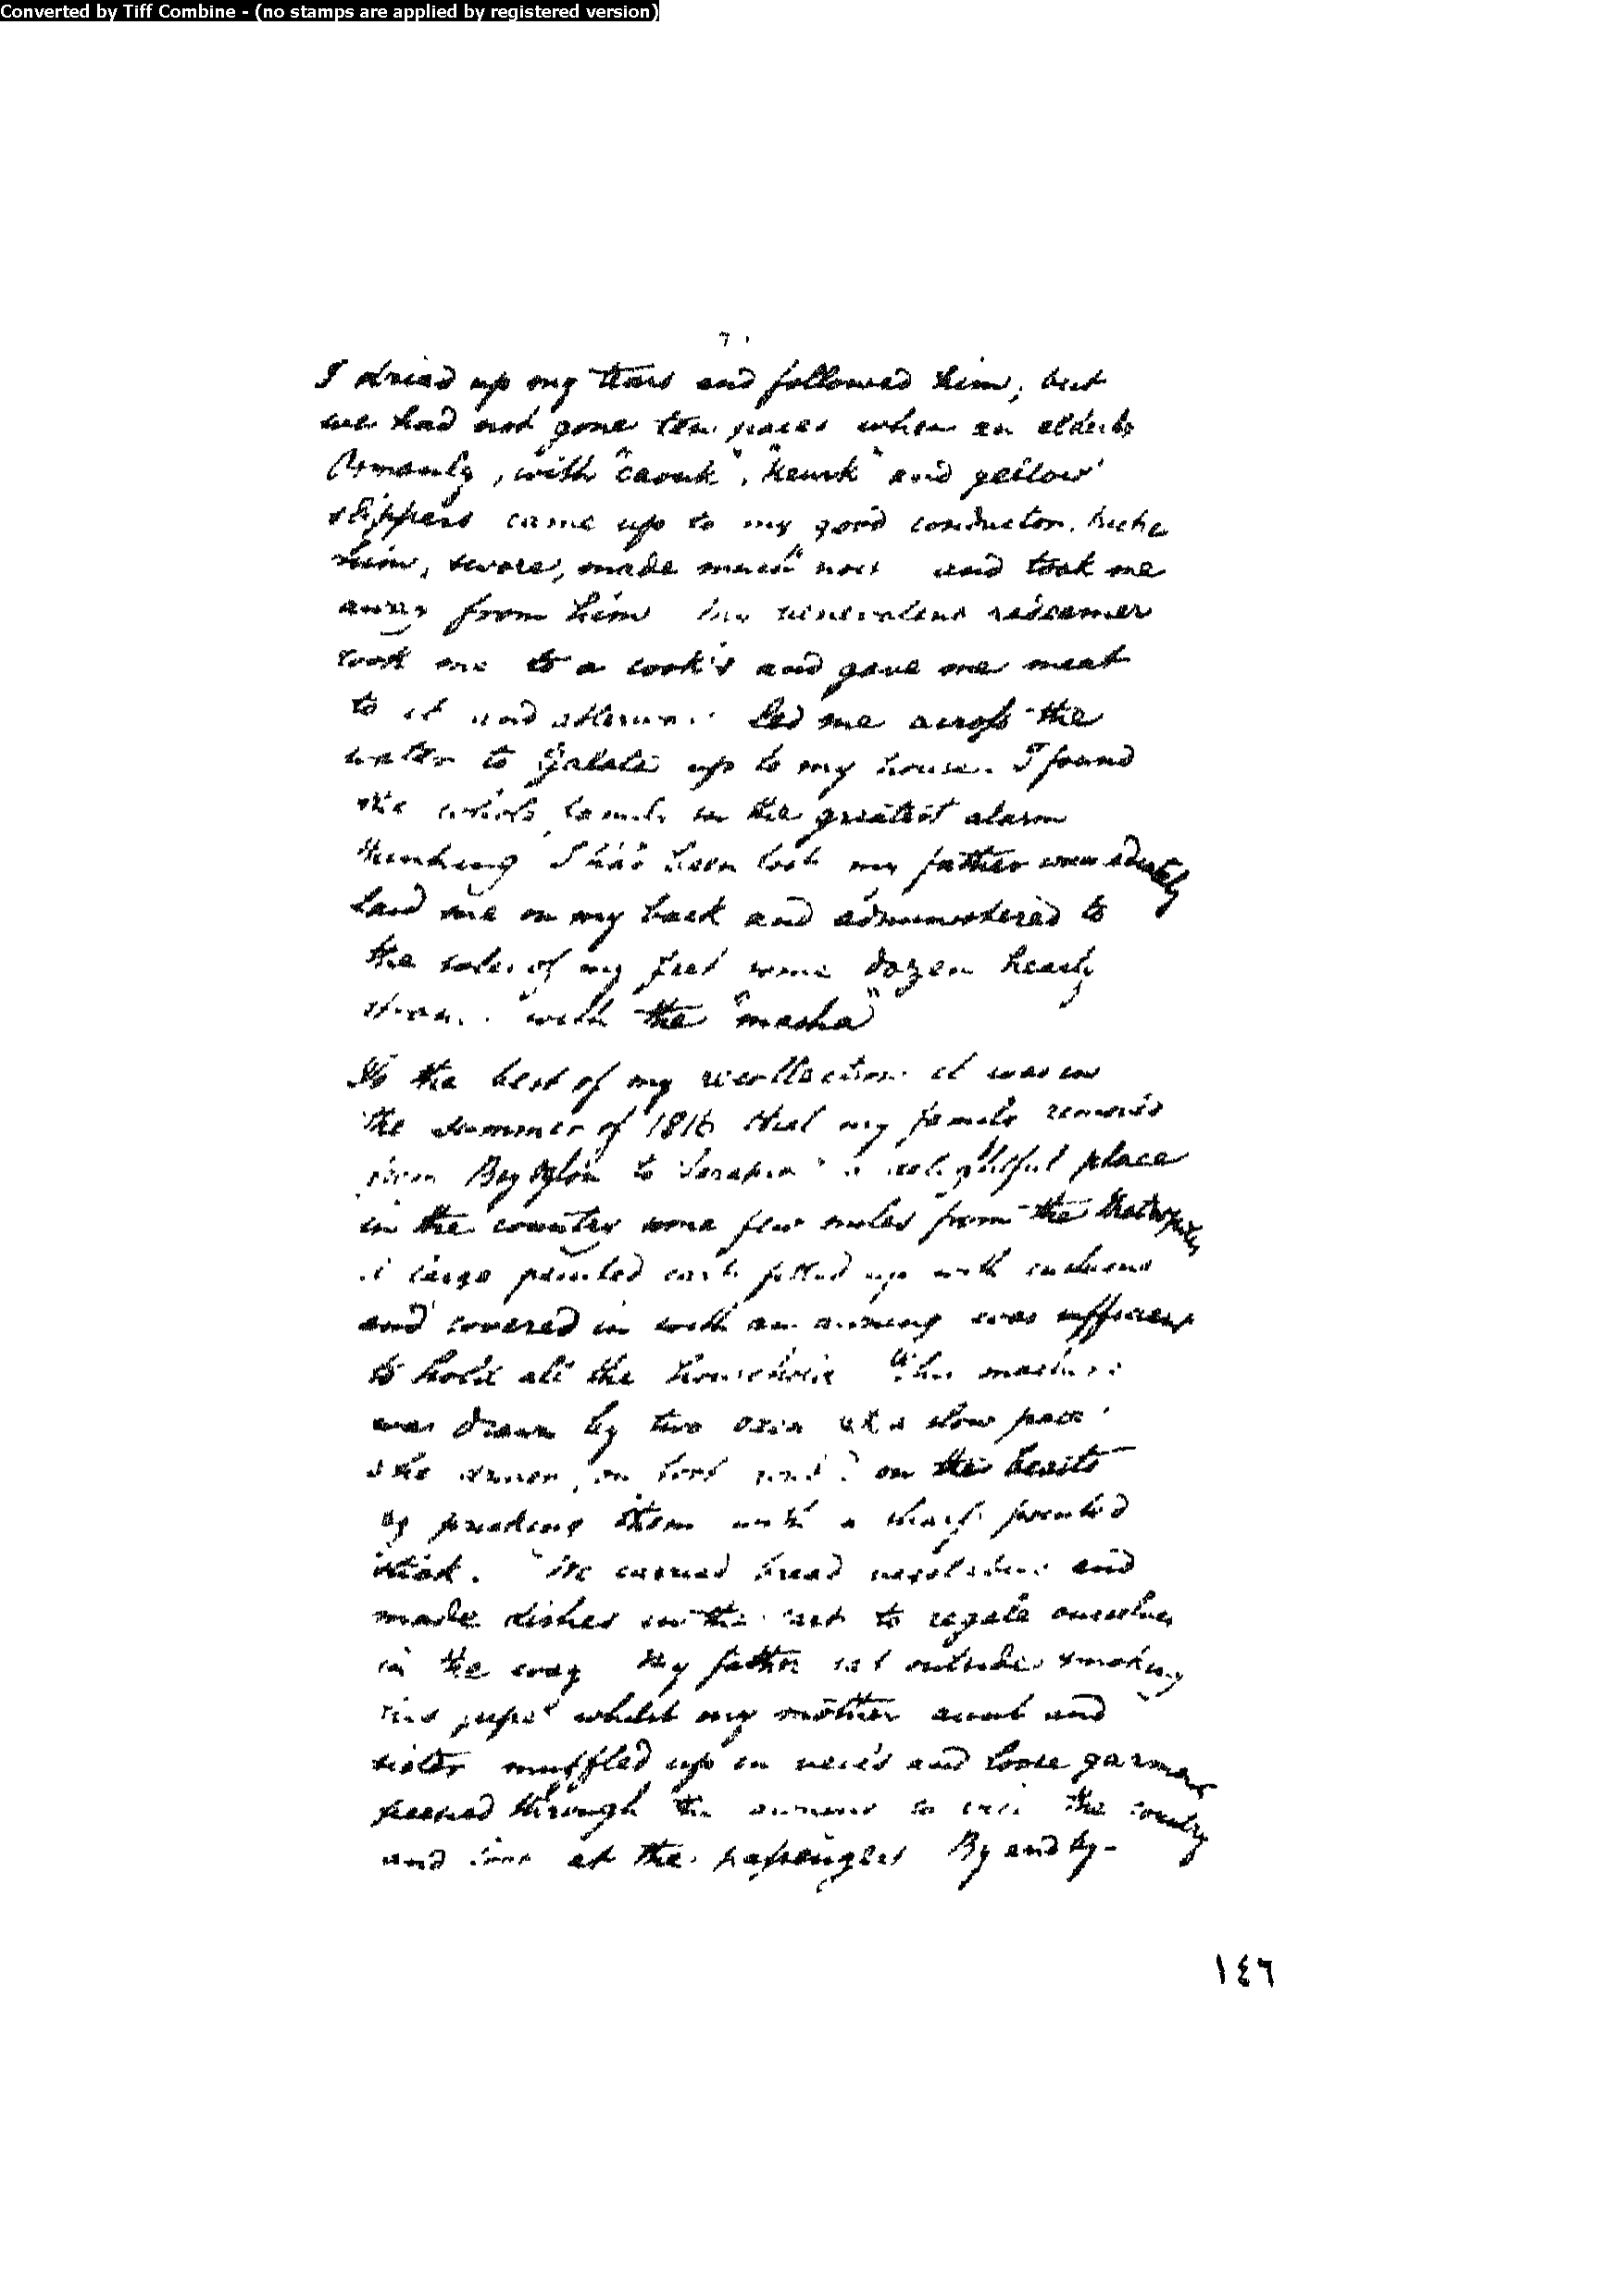 Converted by Tiff Combine - (no stamps are applied by registered version)
7.
I dried up my tears and followed him, but
we had not gone ten paces when an elderly
Armenian, with "caouk", "keurk" and yellow
slippers came up to my good conductor,
him, swore, made much noise and took me
away from him my benevolent redeemer
took me to a cook's and gave me meat
to eat and led me across the
water to Galata up to my house. I found
the whole family in the greatest alarm
thinking I had been lost my father immediately
laid me on my back and administered to
the soles of my feet some dozen hearty
with the "masha"
To the best of my recollection it was in
the summer of 1816 that my family removed
from to a delightful place
in the country some few miles from the
a large painted cart fitted up with cushions
and covered in with an awning was sufficient
to hold all the household This machine
was drawn by two oxen at a slow pace
the driver on foot on the beasts
by them with a sharp pointed
stick. We carried bread and
made dishes in the to regale ourselves
in the way My father sat outside smoking
his pipe whilst my mother aunt and
sister muffled up in veils and loose garments
peeped through the awning to the country
and look at the passengers By and by-
١٤٦